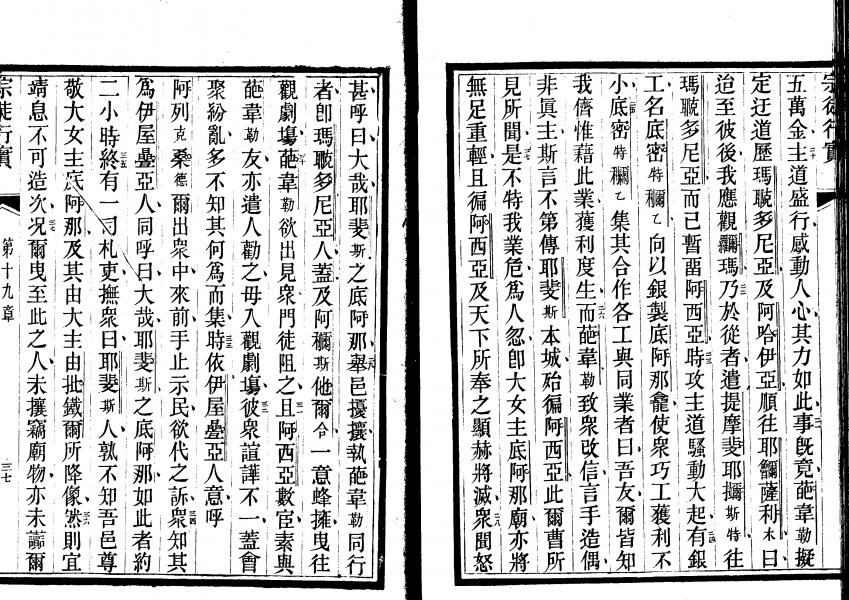 宗徒行實
五萬金主道盛行感動人心其力如此事旣竟葩韋勒擬
定迂道歷瑪聮多尼亞及阿哈伊亞順往耶𬤊薩利木曰
迨至彼後我應觀𬤊瑪乃於從者遣提摩斐耶𬤊斯特往
瑪聮多尼亞而已暫畱阿西亞時攻主道騷動大起有銀
工名底密特𥡴乙向以銀製底阿那龕使衆巧工獲利不
小底密特𥡴乙集其合作各工與同業者曰吾友爾皆知
我儕惟藉此業獲利度生而葩韋勒致衆改信言手造偶
非眞主斯言不第傳耶斐斯本城殆徧阿西亞此爾曹所
見所聞是不特我業危爲人忽卽大女主底阿那廟亦將
無足重輕且徧阿西亞及天下所奉之顯赫將滅衆聞怒
甚呼曰大哉耶斐斯之底阿那舉邑擾攘執葩韋勒同行
者卽瑪聮多尼亞人蓋及阿𥡴斯他爾合一意蜂擁曳往
觀劇塲葩韋勒欲出見衆門徒阻之且阿西亞數宦素與
葩韋勒友亦遣人勸之毋入觀劇塲彼衆諠譁不一蓋會
聚紛亂多不知其何爲而集時依伊屋疊亞人意呼
阿列克桑德爾出衆中來前手止示民欲代之訴衆知其
爲伊屋疊亞人同呼曰大哉耶斐斯之底阿那如此者約
二小時終有一司札吏撫衆曰耶斐斯人孰不知吾邑尊
敬大女主底阿那及其由大主由批鐵爾所降像然則宜
靖息不可造次况爾曳至此之人未攘竊廟物亦未讟爾
宗徒行實
第十九章
三七